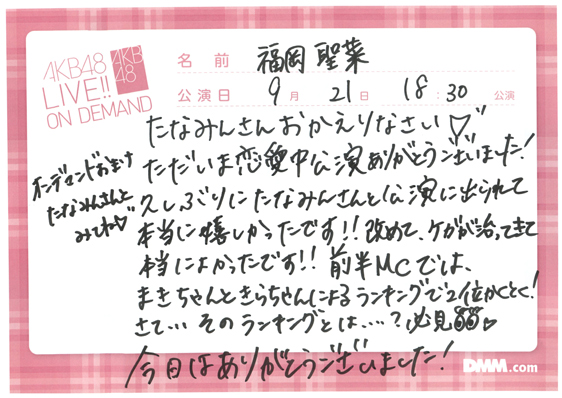 AKB48
LIVE!!
ON DEMAND
AKB
48
名前 福岡聖菜
公演日 9月21日 18:30公演
たなみんさんおかえりなさい♡
ただいま恋愛中公演ありがとうございました!
久しぶりにたなみんさんと公演に出られて
本当に嬉しかったです!!改めて、ケガが治ってきて
本当によかったです!!前半MCでは、
まきちゃんときらちゃんによるランキングで2位かくとく!
さて…そのランキングとは…・?必見
今日はありがとうございました!
オンデマンドおまけ
たなみんさんと
みてね♡
DMM.com